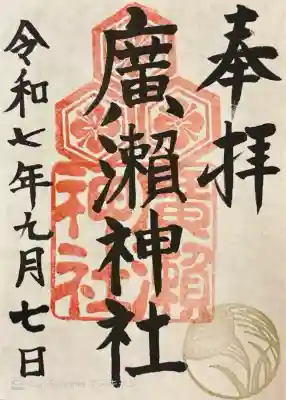 奉拝
廣瀨神社
廣瀨神社
令和七年九月七日